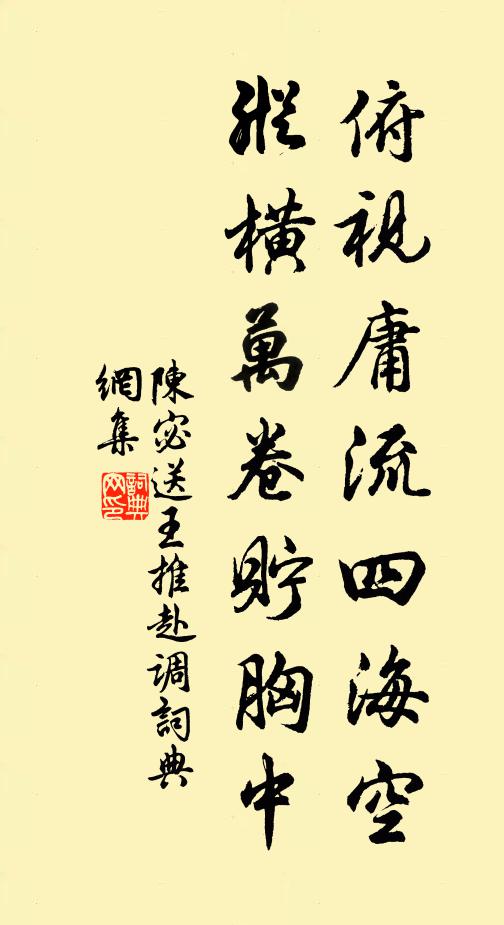 俯視庸流四海空
縱橫萬卷貯胸中
陳宓送王推赴调詞典
網集
詞典
网印